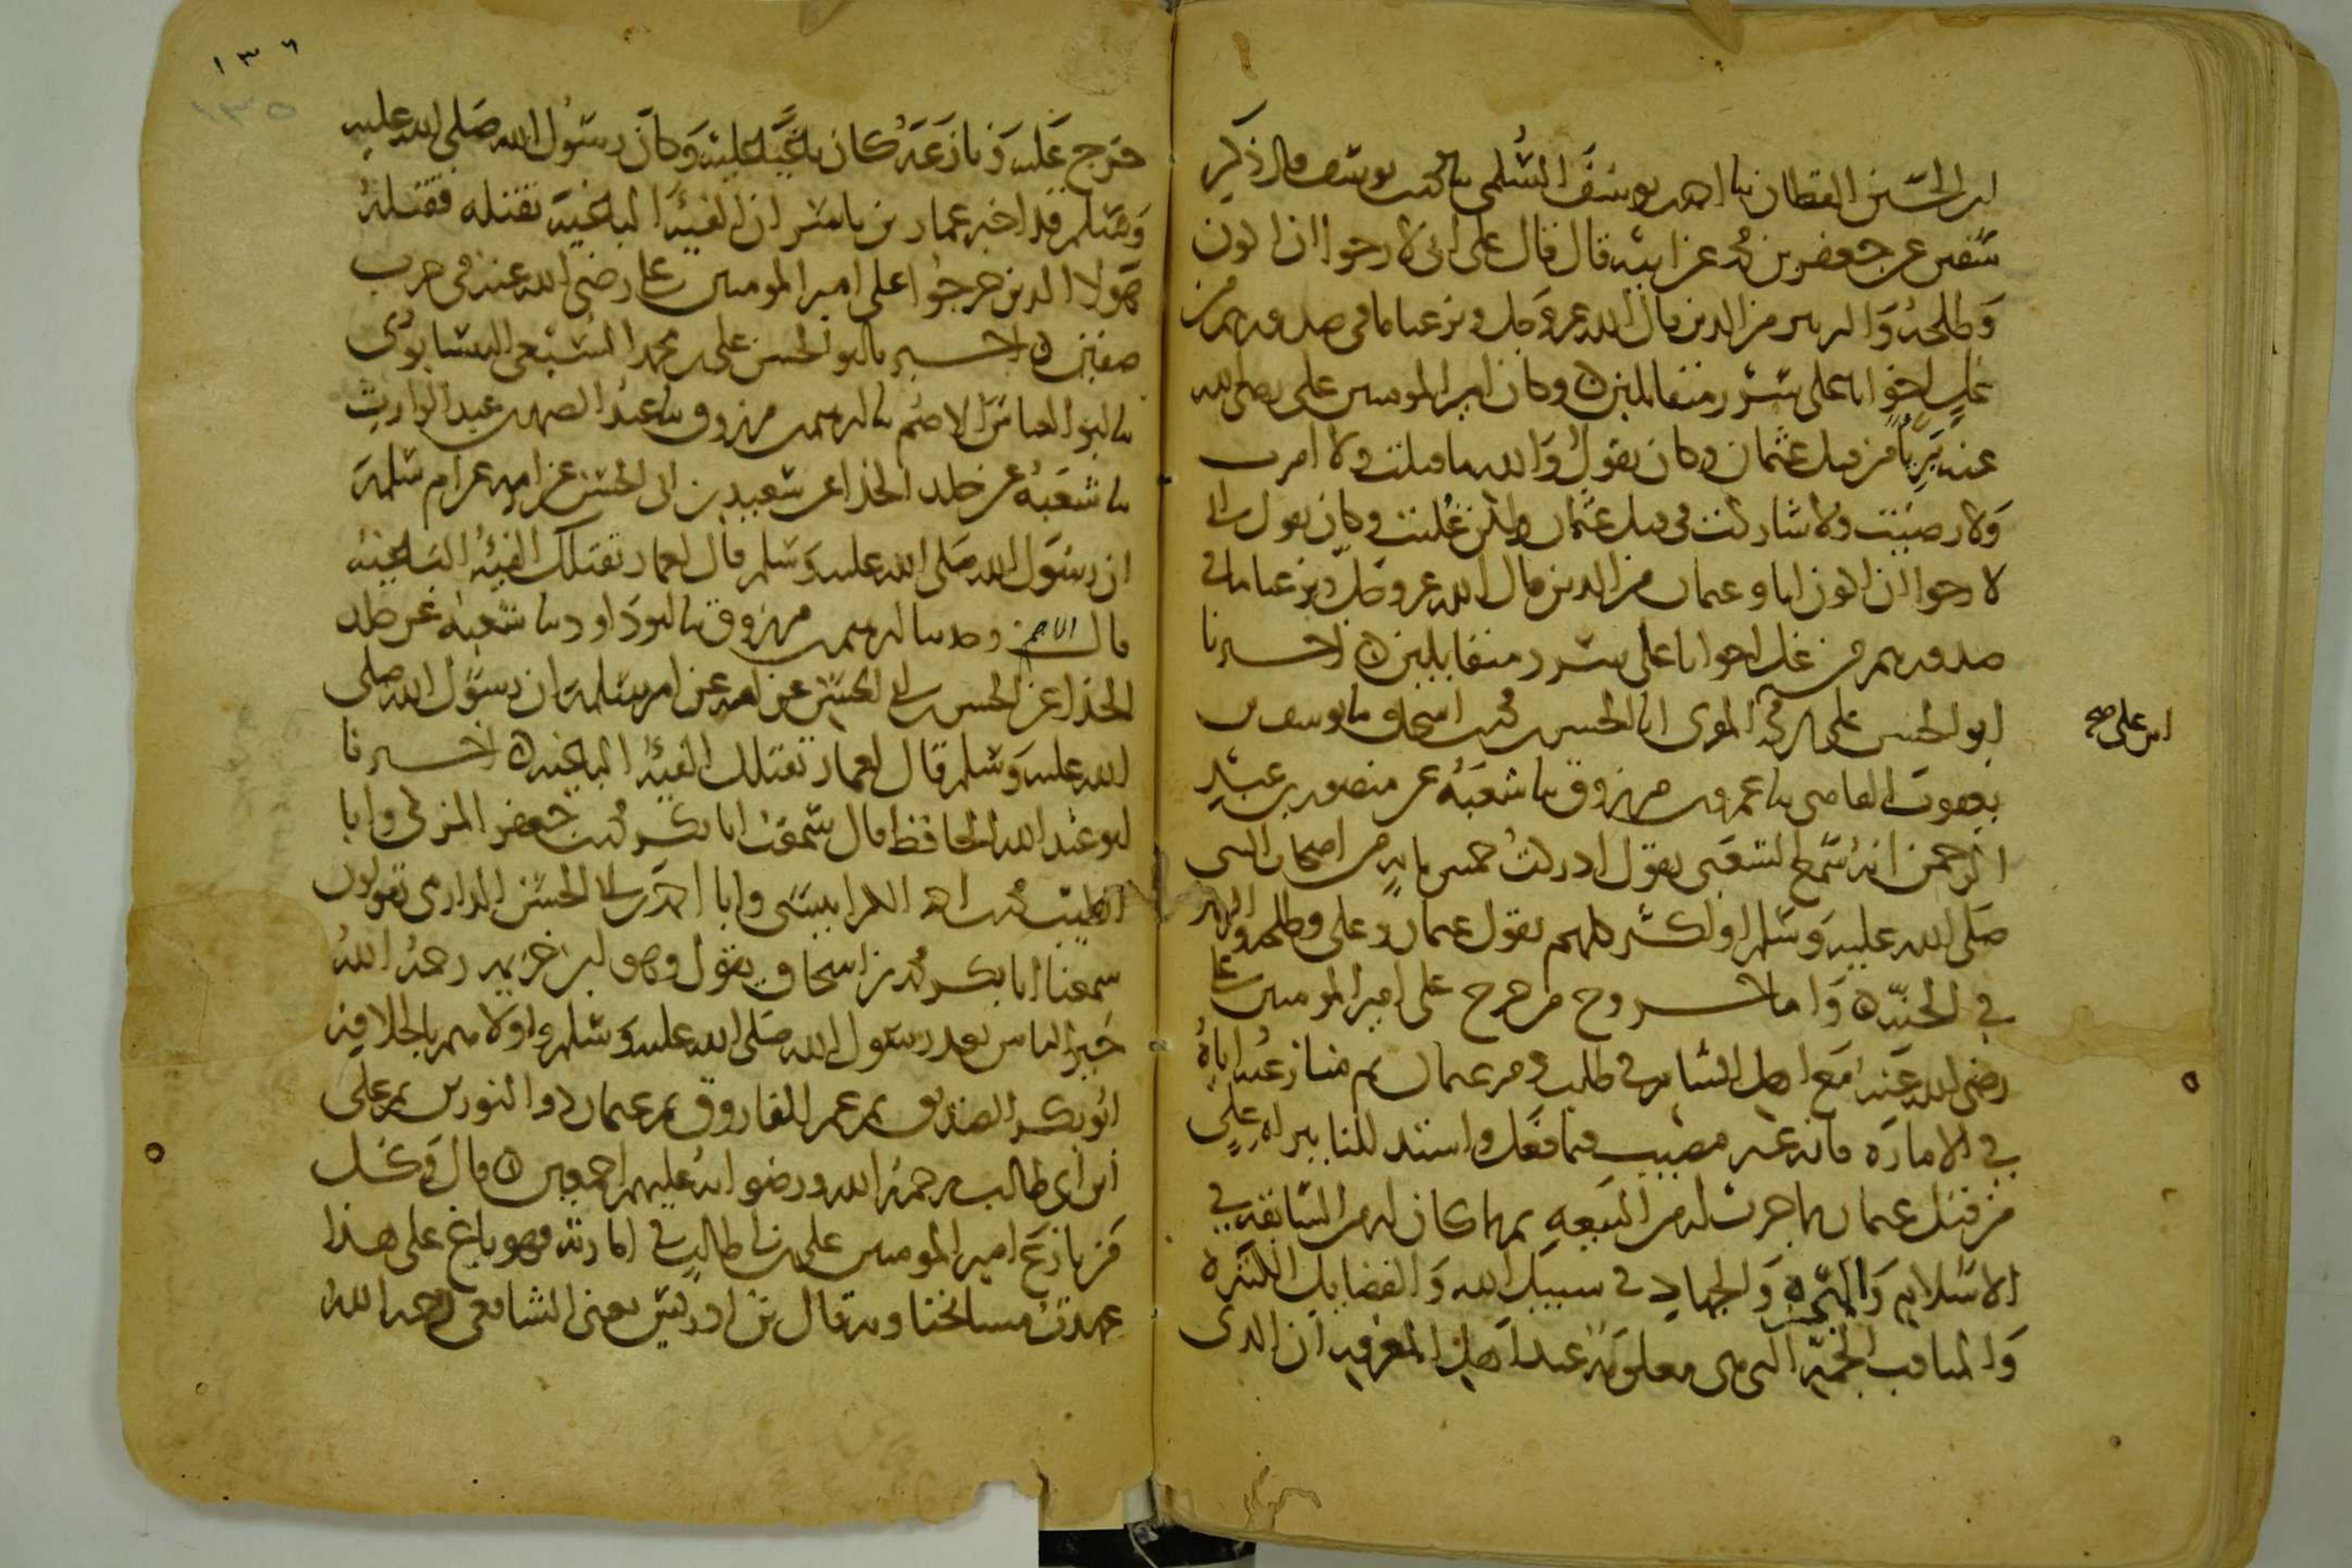 ابن الحسين القطان نا احمد بن يوسف السلمي نا محمد بن يوسف قال ذكر
سفين عن جعفر بن محمد عن ابيه قال قال علي اني لارجوا ان اكون
وطلحة والزبير من الذين قال الله عز وجل ونزعنا ما في صدورهم من
غل اخوانا على سرر متقابلين ه وكان امير المومنين علي رضي الله
عنه بريا من قتل عثمان وكان يقول والله ما قتلت ولا امرت
ولا رضيت ولا شاركت في قتل عثمان ولكن غلبت وكان يقول اني
لارجوا ان اكون انا وعثمان من الذين قال الله عز وجل ونزعنا ما في
صدورهم من غل اخوانا على سرر متقابلين ه اخبرنا
ابو الحسن علي بن محمد المقرى انا الحسن بن محمد بن اسحاق نا يوسف بن
يعقوب القاضي نا عمرو بن مرزوق نا شعبة عن منصور بن عبد
الرحمن انه سمع الشعبي يقول ادركت خمس ماية من اصحاب النبي
صلى الله عليه وسلم او اكثر كلهم يقول عثمان وعلي وطلحة والزبير
في الجنة ه واما خروج من خرج على امير المومنين علي
رضي الله عنه مع اهل الشام في طلب دم عثمان ثم منازعته اياه
في الامارة فانه غير مصيب فيما فعل واستدللنا ببراه علي
من قتل عثمان بما جرت له من البيعه بما كان له من السابقه في
الاسلام والهجرة والجهاد في سبيل الله والفضايل الكثيرة
والمناقب الجمة التي هي معلومة عند اهل المعرفة ان الذي
ابن علي صح
١٣٦
١٣٥
خرج عليه ونازعه كان باغيا عليه وكان رسول الله صلى الله عليه
وسلم قد اخبر عمار بن ياسر ان الفية الباغية تقتله فقتله
هولا الذين خرجوا على امير المومنين علي رضي الله عنه في حرب
صفين ه اخبرنا ابو الحسن علي بن محمد السبعي النيسابوري
نا ابو العباس الاصم نا ابرهيم بن مرزوق نا عبد الصمد بن عبد الوارث
نا شعبة عن خلد الحذا عن سعيد بن ابي الحسن عن امه عن ام سلمة
ان رسول الله صلى الله عليه وسلم قال لعمار تقتلك الفية الباغية
قال الاصم وحدثنا ابرهيم بن مرزوق نا ابو داود نا شعبة عن خلد
الحذا عن الحسن بن ابي الحسن عن امه عن ام سلمة ان رسول الله صلى
الله عليه وسلم قال لعمار تقتلك الفية الباغية ه اخبرنا
ابو عبد الله الحافظ قال سمعت ابا بكر محمد بن جعفر المزكي وابا
الطيب محمد بن احمد الكرابيسي وابا احمد بن ابي الحسن الدارمي يقولون
سمعنا ابا بكر محمد بن اسحاق يقول وهو ابن خزيمة رحمه الله
خير الناس بعد رسول الله صلى الله عليه وسلم واولاهم بالخلافة
ابو بكر الصديق ثم عمر الفاروق ثم عثمان ذو النورين ثم علي
ابن ابي طالب رحمة الله ورضوانه عليهم اجمعين ه قال وكل
من نازع امير المومنين علي بن ابي طالب في امارته فهو باغ على هذا
عهدت مشايخنا وبه قال بن ادريس يعني الشافعي رحمه الله